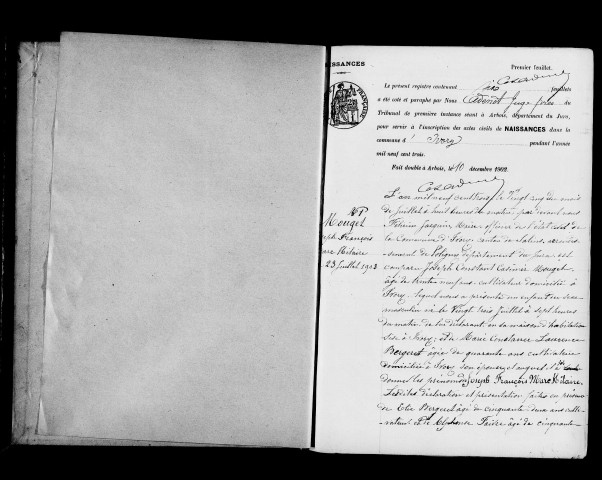 NAISSANCES
Premier feuillet.
Le présent registre contenant dix feuillets
a été coté et paraphé par Nous Juge près du
Tribunal de première instance séant à Arbois, département du Jura,
pour servir à l'inscription des actes civils de NAISSANCES dans la
commune d' Ivory pendant l'année
mil neuf cent trois.
Fait double à Arbois, le 10 décembre 1902.
N° 1
Mouget
Joseph François
Marc Hilaire
23 Juillet 1903
L'an mil neuf cent trois, le Vingt du mois
de Juillet à huit heures du matin, par devant nous
Jacquin, Maire officier de l'état civil de
la Commune d'Ivory, canton de Salins, arrondis-
sement de Poligny département du Jura, est
comparu Joseph Constant Casimir Mouget
âgé de trente neuf ans, cultivateur domicilié à
Ivory, lequel nous a présenté un enfant du sexe
masculin né le Vingt trois Juillet à sept heures
du matin de lui déclarant en sa maison d'habitation
sise à Ivory, et de Marie Constance Laurence
Bergeret âgée de quarante ans cultivatrice
domiciliée à Ivory son épouse, et auquel il a
donner les prénoms de Joseph François Marc Hilaire,
Lesdites déclaration et présentation faites en présence
de Elie Bergeret âgé de cinquante deux ans culti-
vateur et de Alphonse Faivre âgé de cinquante-